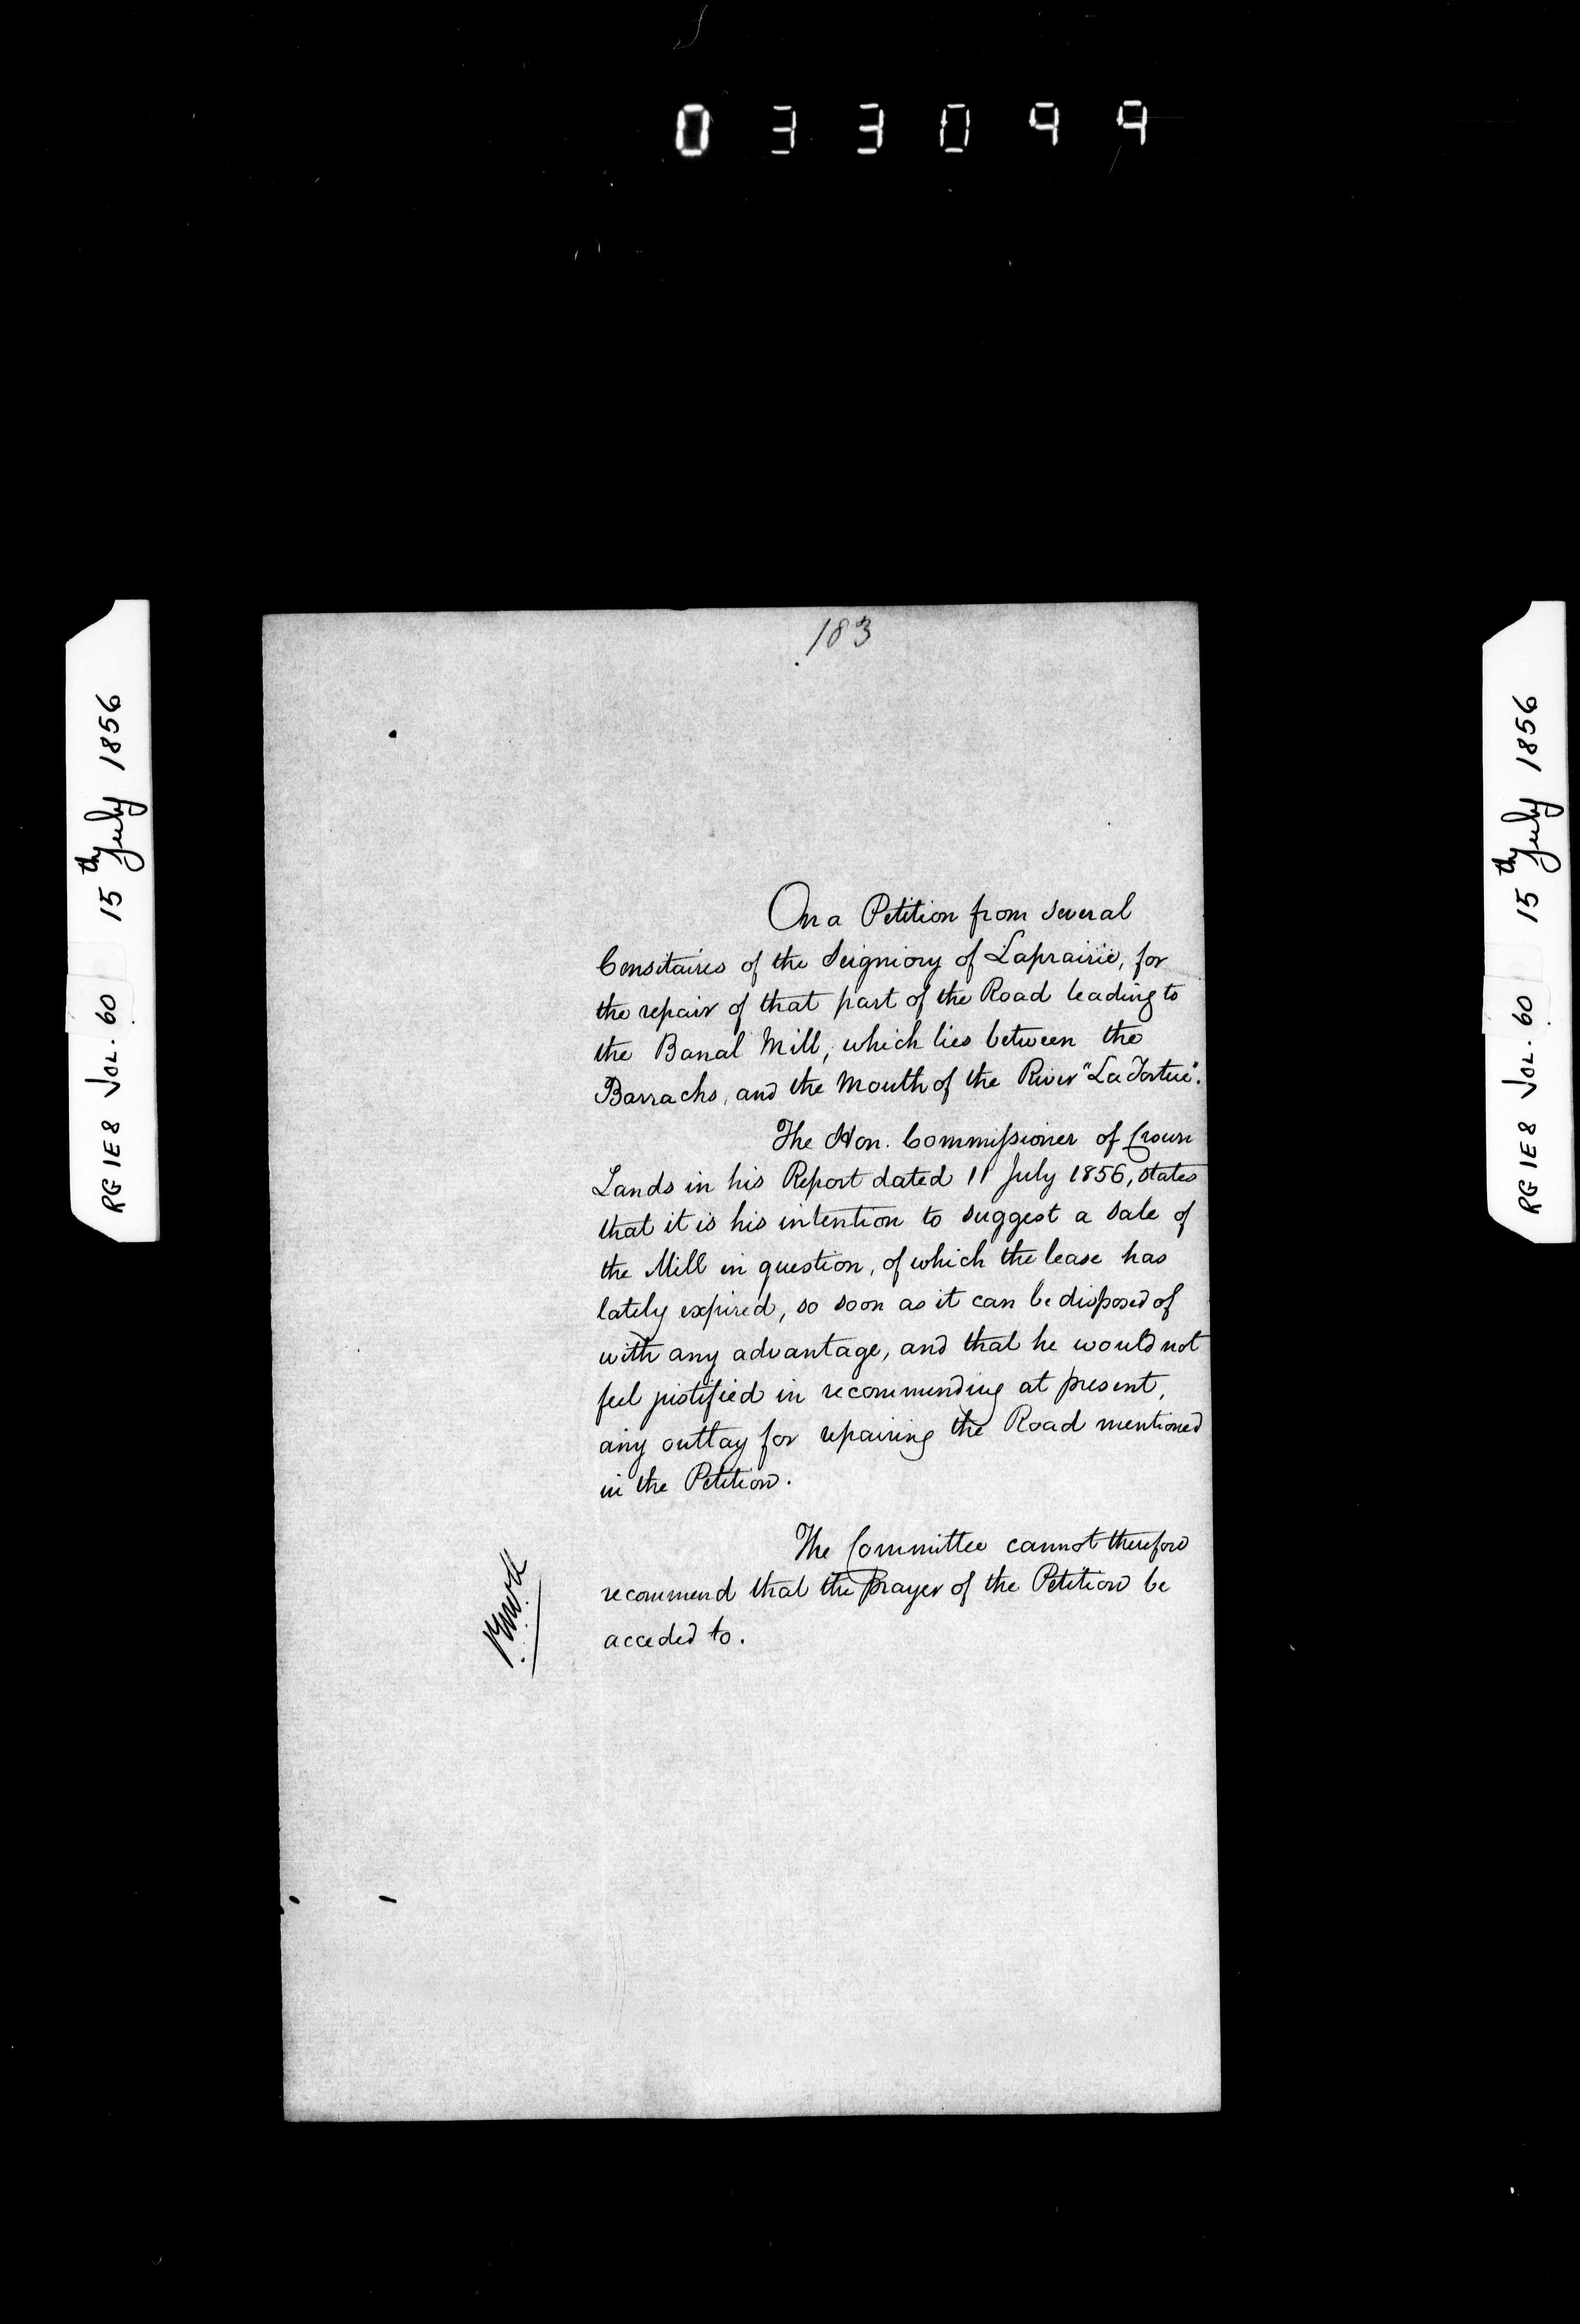 033099
183
RG 1E8 VOL. 60 15th July 1856
On a Petition from several
Censitaires of the Seigniory of Laprairie, for
the repair of that part of the Road leading to
the Banal Mill, which lies between the
Barracks, and the Mouth of the River "La Tortue".
The Hon. Commissioner of Crown
Lands in his Report dated 11 July 1856, states
that it is his intention to suggest a sale of
the Mill in question, of which the lease has
lately expired, so soon as it can be disposed of
with any advantage, and that he would not
feel justified in recommending at present,
any outlay for repairing the Road mentioned
in the Petition.
The Committee cannot therefore
recommend that the prayer of the Petition be
acceded to.
RG 1E8 VOL. 60 15th July 1856